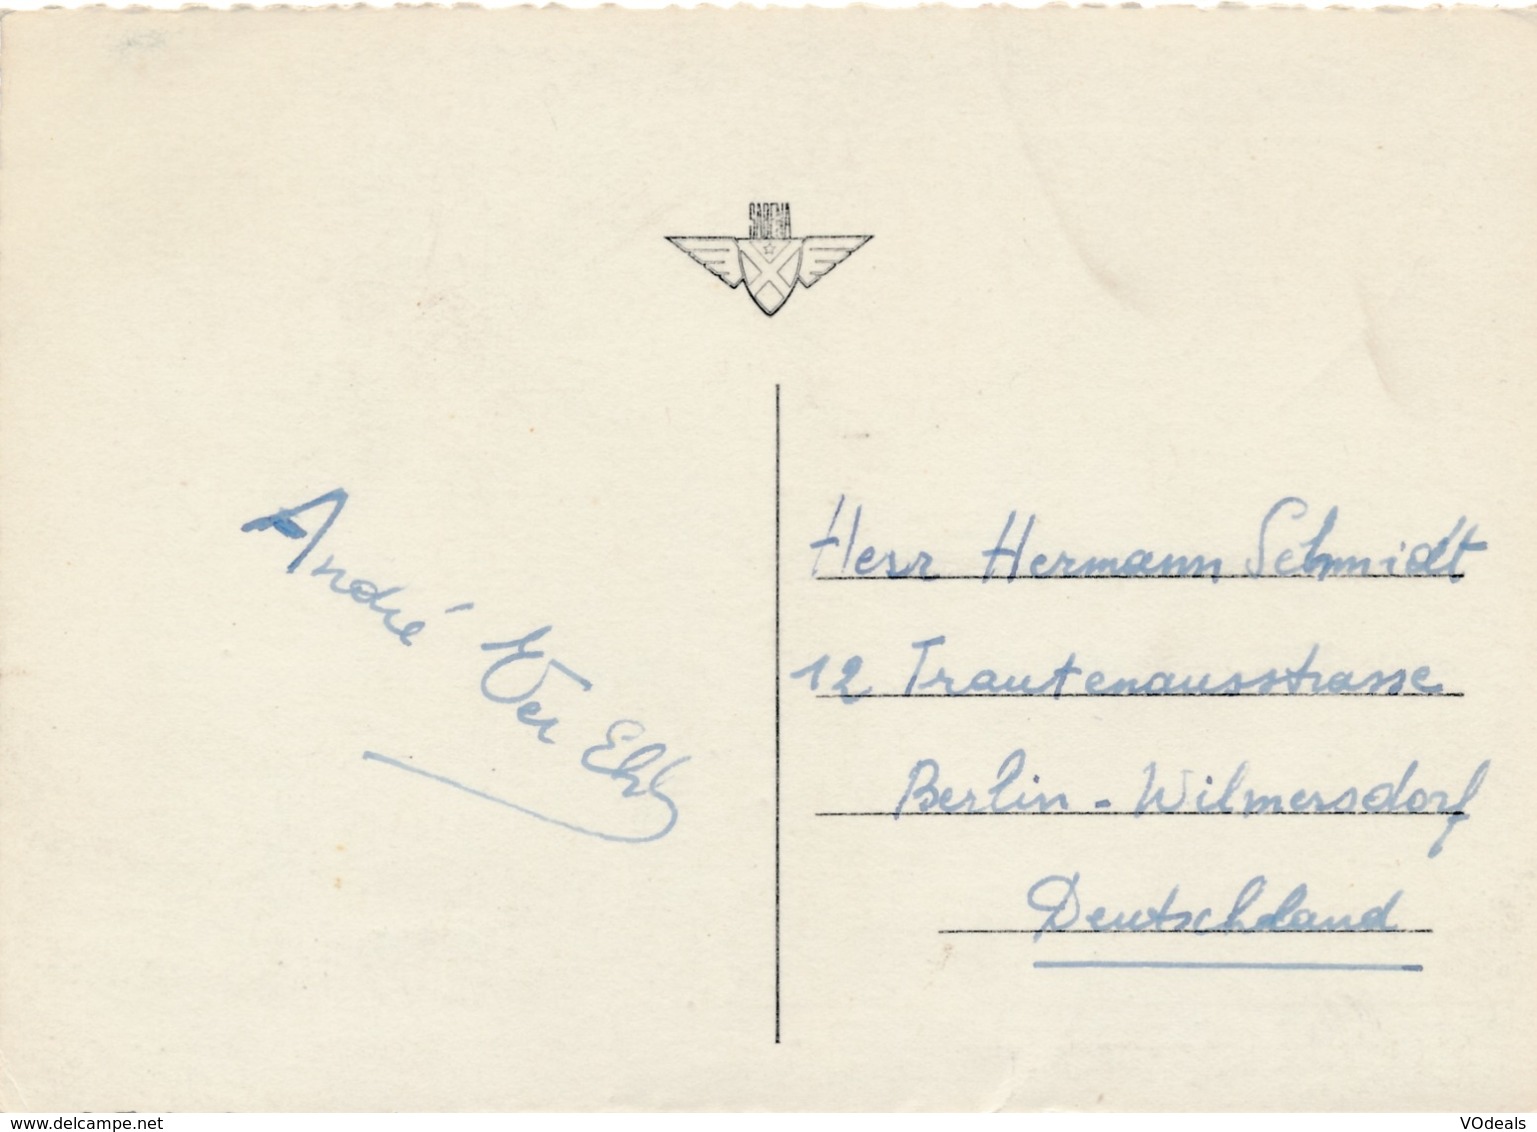 SABENA
André
Herr Hermann Schmidt
12 Trautenausstrasse
Berlin - Wilmersdorf
Deutschland
www.delcampe.net
VOdeals